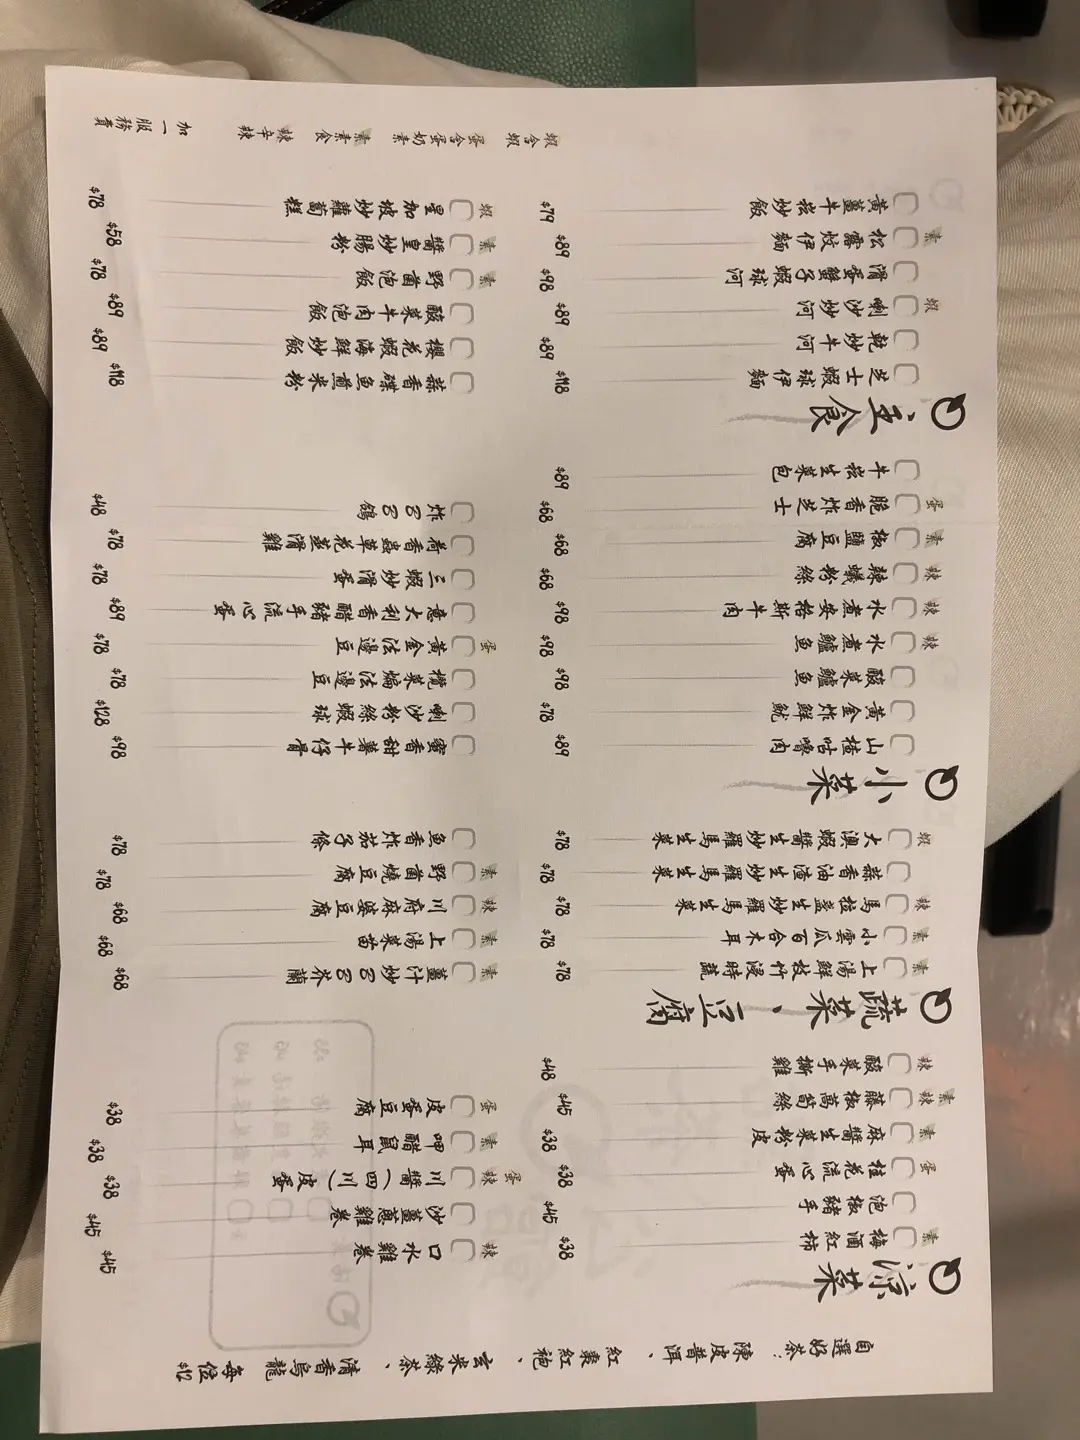 自選好茶：陳皮普洱、紅棗紅袍、玄米綠茶、清香烏龍 每位 $12
涼菜
素 梅酒紅柿 $38
泡椒豬手 $45
蛋 桂花流心蛋 $38
素 麻醬生菜粉皮 $38
素 辣 藤椒萵筍絲 $45
辣 酸菜手撕雞 $48
辣 口水雞卷 $45
沙薑蔥雞卷 $45
蛋 辣 川醬(四川)皮蛋 $38
素 呷醋鼠耳 $38
蛋 皮蛋豆腐 $38
蔬菜、豆腐
素 上湯鮮枝竹浸時蔬 $78
素 小雲瓜百合木耳 $78
辣 馬拉盞生炒羅馬生菜 $78
蒜香油渣生炒羅馬生菜 $78
蝦 大澳蝦醬生炒羅馬生菜 $78
素 薑汁炒BB芥蘭 $68
素 上湯菜苗 $68
辣 川府麻婆豆腐 $68
素 野菌燒豆腐 $78
魚香炸茄子條 $78
小菜
山楂咕嚕肉 $89
黃金炸鮮魷 $78
酸菜鱸魚 $98
辣 水煮鱸魚 $98
辣 水煮安格斯牛肉 $98
辣 辣蟻粉絲 $68
素 椒鹽豆腐 $68
蛋 脆香炸芝士 $68
牛崧生菜包 $89
蜜香甜薯牛仔骨 $98
喇沙粉絲蝦球 $128
欖菜煸法邊豆 $78
蛋 黃金法邊豆 $78
意大利香醋豬手流心蛋 $89
三蝦炒滑蛋 $78
荷香蟲草花蒸滑雞 $78
炸BB鴿 $48
主食
芝士蝦球伊麵 $118
乾炒牛河 $89
蝦 喇沙炒河 $89
滑蛋蟹子蝦球河 $98
素 松露炆伊麵 $89
黃薑牛崧炒飯 $79
蒜香碟魚煎米粉 $118
櫻花蝦海鮮炒飯 $89
酸菜牛肉泡飯 $89
素 野菌泡飯 $78
素 醬皇炒腸粉 $58
蝦 星加坡炒蘿蔔糕 $78
蝦 含蝦 蛋 含蛋奶素 素 素食 辣 辛辣 加一服務費